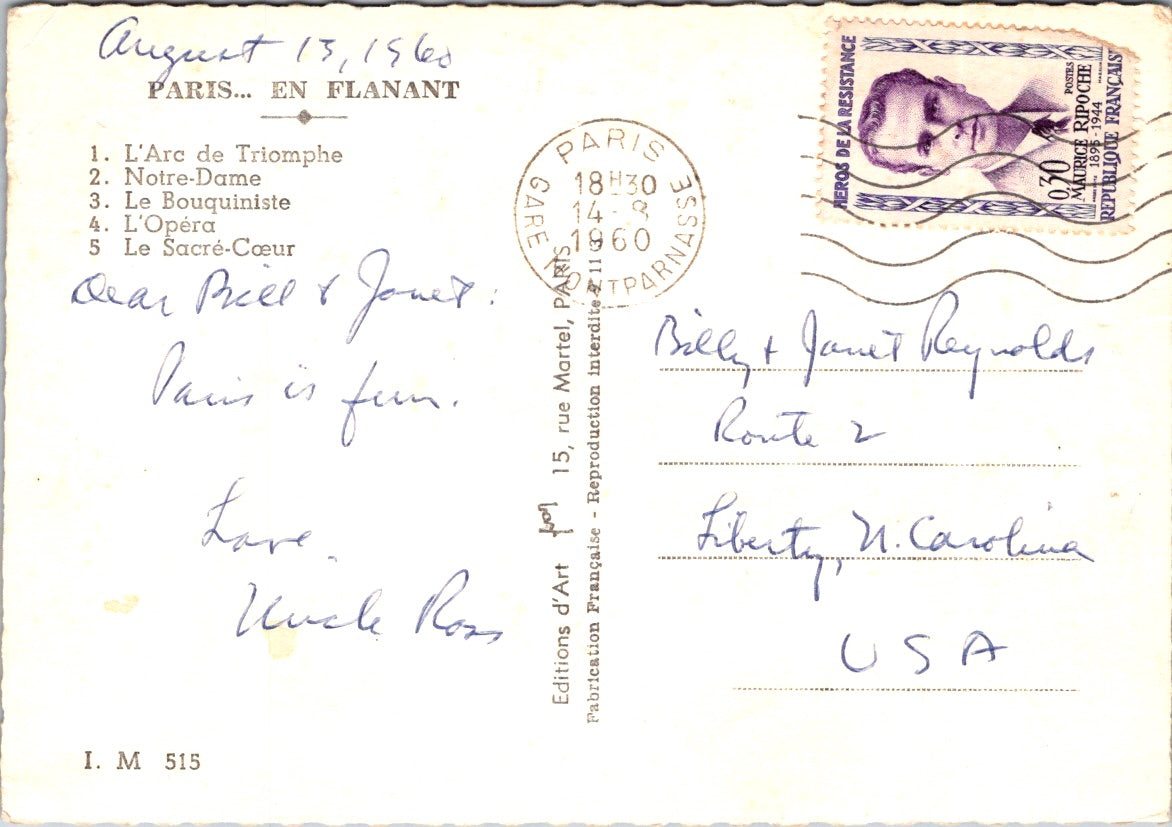 August 13, 1960
PARIS... EN FLANANT
1. L'Arc de Triomphe
2. Notre-Dame
3. Le Bouquiniste
4. L'Opéra
5 Le Sacré-Cœur
Dear Bill & Janet:
Paris is fun.
Love,
Uncle Ross
I. M 515
Editions d'Art 15, rue Martel, PARIS
Fabrication Française - Reproduction interdite
PARIS
18H30
14-8
1960
GARE MONTPARNASSE
HEROS DE LA RESISTANCE
POSTES
0,30
MAURICE RIPOCHE
1895-1944
REPUBLIQUE FRANÇAISE
Billy & Janet Reynolds
Route 2
Liberty, N. Carolina
USA